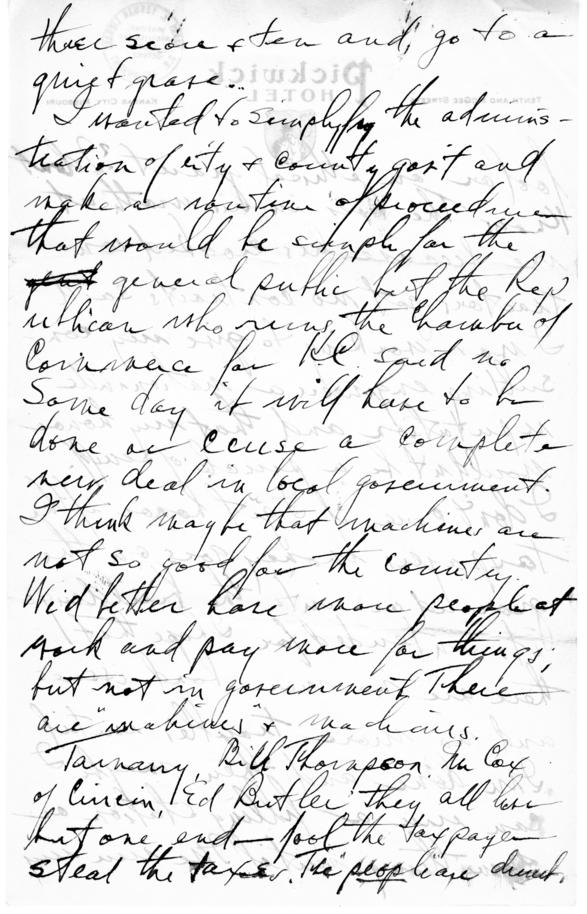 three score & ten and, go to a
quiet grave..
I wanted to simplyfy the adminis-
tration of city & county gov't and
make a routine of proceedure
that would be simple for the
general public but the Rep
ublican who runs, the Chamber of
Commerce for K.C. said no
Some day it will have to be
done or ceuse a complete
new deal in local government.
I think maybe that machines are
not so good for the country.
We'd better have more people at
work and pay more for things;
but not in government There
are "mahines" & machines.
Tammany, Bill Thompson, Mr Cox
of Cincin, Ed Butler they all have
but one end - fool the taxpayer
steal the taxes. The people are
Pickwick
HOTEL
TENTH AND MCGEE STREETS
KANSAS CITY, MISSOURI